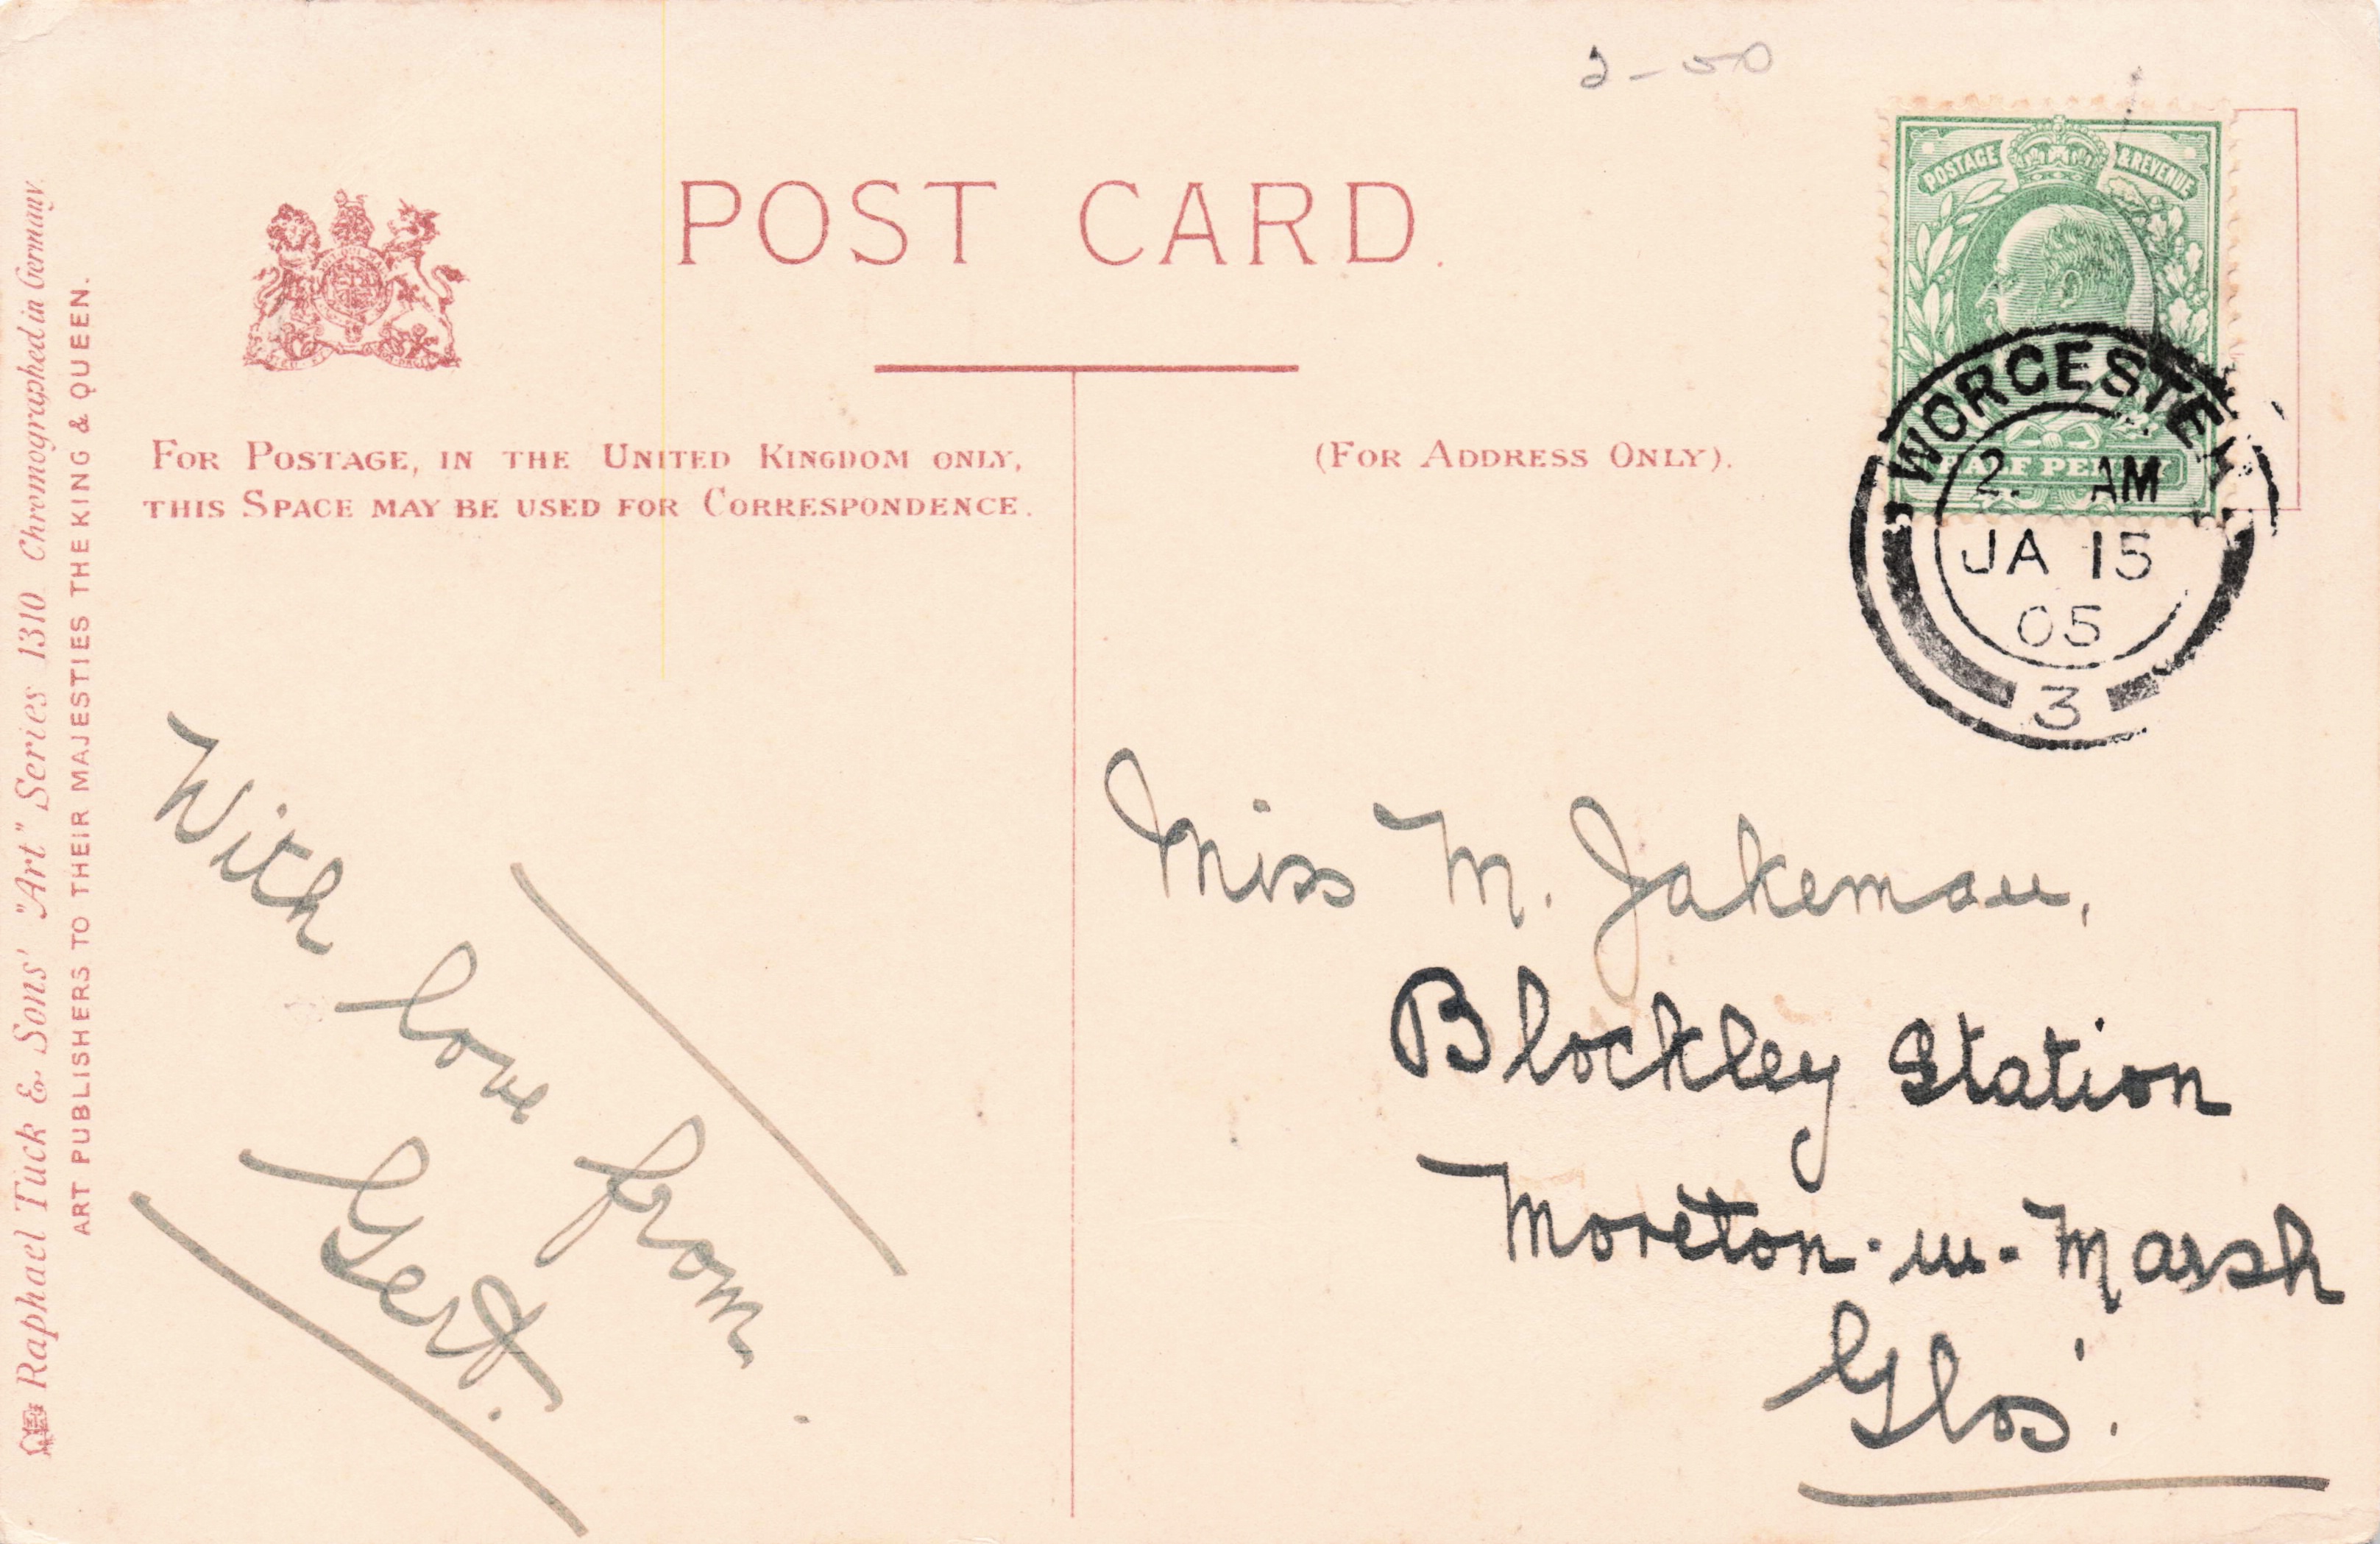 2-50
POST CARD.
POSTAGE & REVENUE
HALF PENNY
WORCESTER
2. AM
JA 15
05
3
FOR POSTAGE, IN THE UNITED KINGDOM ONLY,
THIS SPACE MAY BE USED FOR CORRESPONDENCE.
(FOR ADDRESS ONLY).
With love from
Gert.
Miss M. Jakeman,
Blockley Station
Moreton-in-Marsh
Glos'.
Raphael Tuck & Sons' "Art" Series 1310. Chromographed in Germany.
ART PUBLISHERS TO THEIR MAJESTIES THE KING & QUEEN.